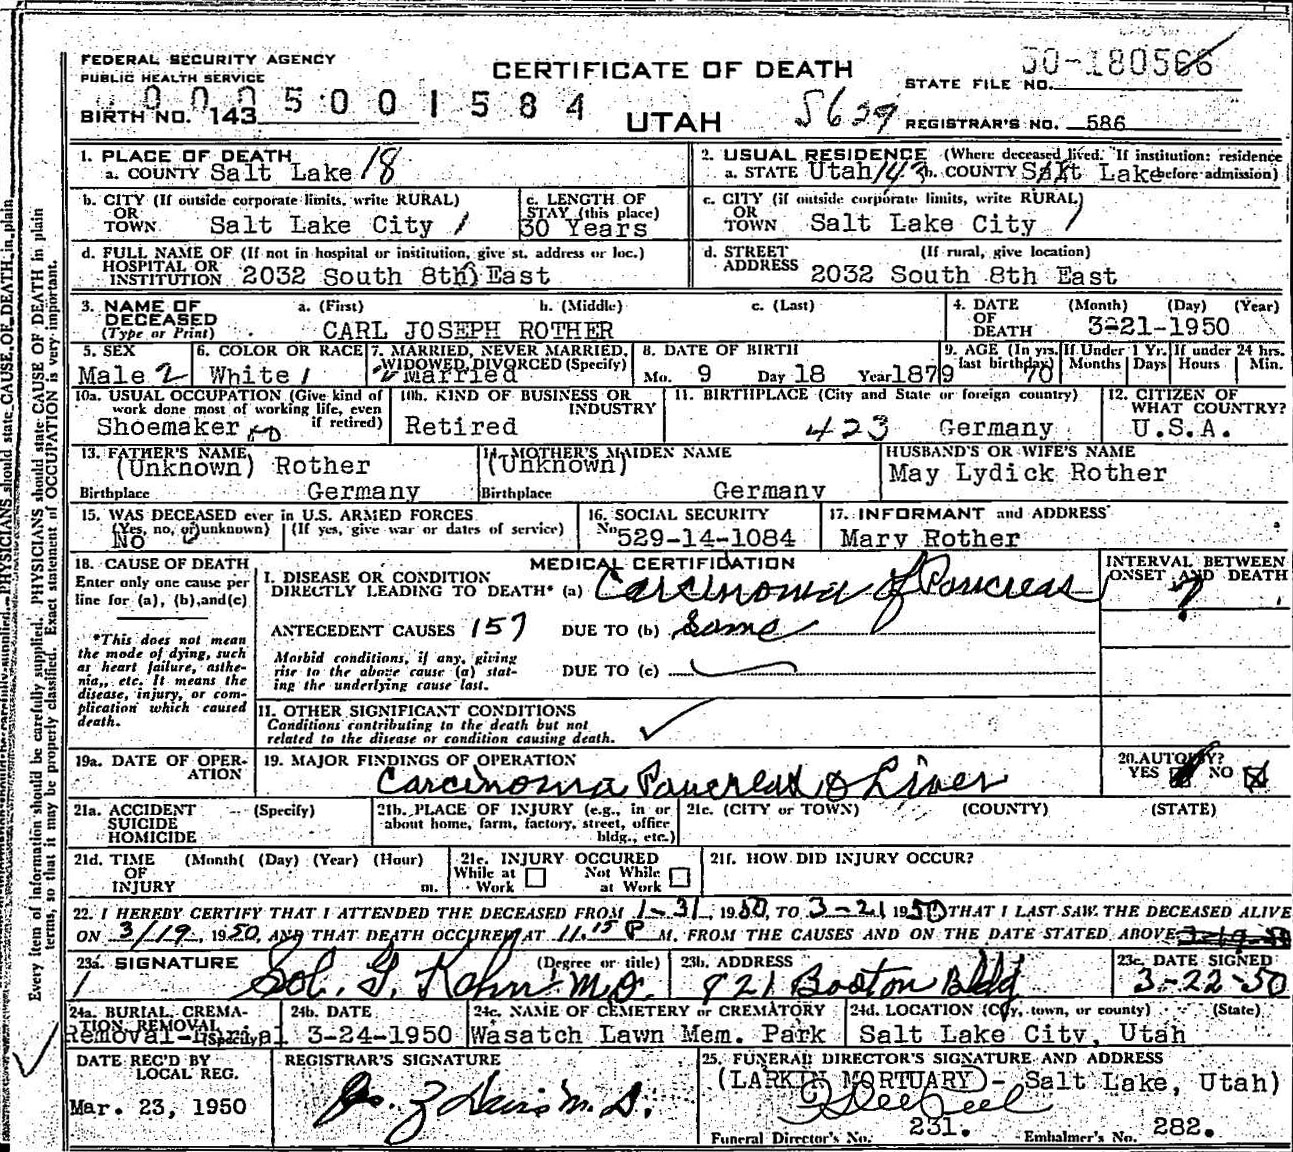 FEDERAL SECURITY AGENCY
PUBLIC HEALTH SERVICE
CERTIFICATE OF DEATH
STATE FILE NO. 50-180566
BIRTH NO. 143 0005001584
UTAH
5629
REGISTRAR'S NO. 586
1. PLACE OF DEATH
a. COUNTY Salt Lake 18
2. USUAL RESIDENCE (Where deceased lived. If institution: residence before admission)
a. STATE Utah 143 b. COUNTY Salt Lake
b. CITY (If outside corporate limits, write RURAL)
OR
TOWN Salt Lake City 1
c. LENGTH OF
STAY (this place)
30 Years
c. CITY (if outside corporate limits, write RURAL)
OR
TOWN Salt Lake City 1
d. FULL NAME OF (If not in hospital or institution, give st. address or loc.)
HOSPITAL OR
INSTITUTION 2032 South 8th East
d. STREET (If rural, give location)
ADDRESS 2032 South 8th East
3. NAME OF DECEASED
(Type or Print)
a. (First) b. (Middle) c. (Last)
CARL JOSEPH ROTHER
4. DATE OF DEATH (Month) (Day) (Year)
3-21-1950
5. SEX
Male 2
6. COLOR OR RACE
White 1
7. MARRIED, NEVER MARRIED,
WIDOWED, DIVORCED (Specify)
2 Married
8. DATE OF BIRTH
Mo. 9 Day 18 Year 1879
9. AGE (In yrs. last birthday) 70
If Under 1 Yr. Months Days
If under 24 hrs. Hours Min.
10a. USUAL OCCUPATION (Give kind of
work done most of working life, even
if retired)
Shoemaker
10b. KIND OF BUSINESS OR
INDUSTRY
Retired
11. BIRTHPLACE (City and State or foreign country)
423 Germany
12. CITIZEN OF
WHAT COUNTRY?
U.S.A.
13. FATHER'S NAME
(Unknown) Rother
Birthplace Germany
14. MOTHER'S MAIDEN NAME
(Unknown)
Birthplace Germany
HUSBAND'S OR WIFE'S NAME
May Lydick Rother
15. WAS DECEASED ever in U.S. ARMED FORCES
(Yes, no, or unknown) (If yes, give war or dates of service)
NO
16. SOCIAL SECURITY
No. 529-14-1084
17. INFORMANT and ADDRESS
Mary Rother
18. CAUSE OF DEATH
Enter only one cause per
line for (a), (b), and (c)
*This does not mean
the mode of dying, such
as heart failure, asthe-
nia, etc. It means the
disease, injury, or com-
plication which caused
death.
MEDICAL CERTIFICATION
I. DISEASE OR CONDITION
DIRECTLY LEADING TO DEATH* (a) Carcinoma of Pancreas
INTERVAL BETWEEN
ONSET AND DEATH
?
ANTECEDENT CAUSES 157 DUE TO (b) Same
Morbid conditions, if any, giving
rise to the above cause (a) stat-
ing the underlying cause last.
DUE TO (c)
11. OTHER SIGNIFICANT CONDITIONS
Conditions contributing to the death but not
related to the disease or condition causing death.
19a. DATE OF OPER-
ATION
19. MAJOR FINDINGS OF OPERATION
Carcinoma Pancreas & Liver
20. AUTOPSY?
YES NO
21a. ACCIDENT (Specify)
SUICIDE
HOMICIDE
21b. PLACE OF INJURY (e.g., in or
about home, farm, factory, street, office
bldg., etc.)
21c. (CITY or TOWN) (COUNTY) (STATE)
21d. TIME (Month( (Day) (Year) (Hour)
OF
INJURY m.
21e. INJURY OCCURED
While at Work Not While at Work
21f. HOW DID INJURY OCCUR?
22. I HEREBY CERTIFY THAT I ATTENDED THE DECEASED FROM 1-31, 1950, TO 3-21 1950 THAT I LAST SAW THE DECEASED ALIVE
ON 3/19, 1950, AND THAT DEATH OCCURED AT 11.15 P M. FROM THE CAUSES AND ON THE DATE STATED ABOVE 3-19-50
23a. SIGNATURE (Degree or title)
Sol. G. Kahn M.D.
23b. ADDRESS
821 Boston Bldg
23c. DATE SIGNED
3-22-50
24a. BURIAL, CREMA-
TION, REMOVAL (Specify)
Removal-Burial
24b. DATE
3-24-1950
24c. NAME OF CEMETERY or CREMATORY
Wasatch Lawn Mem. Park
24d. LOCATION (City, town, or county) (State)
Salt Lake City, Utah
DATE REC'D BY
LOCAL REG.
Mar. 23, 1950
REGISTRAR'S SIGNATURE
25. FUNERAL DIRECTOR'S SIGNATURE AND ADDRESS
(LARKIN MORTUARY)- Salt Lake, Utah)
Funeral Director's No. 231. Embalmer's No. 282.
Every item of information should be carefully supplied. PHYSICIANS should state CAUSE OF DEATH in plain
terms, so that it may be properly classified. Exact statement of OCCUPATION is very important.